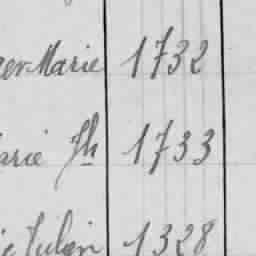 er-Marie 1732
arie Jh 1733
ie Julien 1328